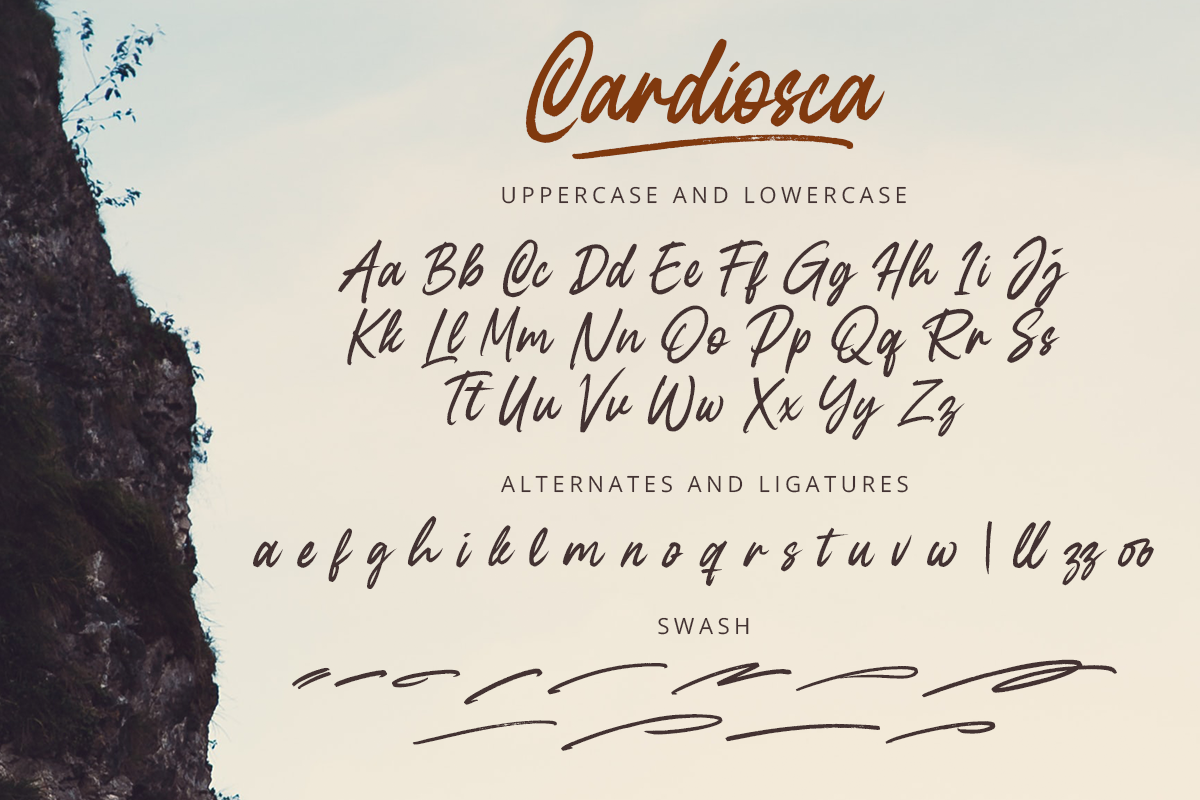 Cardiosca
UPPERCASE AND LOWERCASE
Aa Bb Cc Dd Ee Ff Gg Hh Ii Jj
Kk Ll Mm Nn Oo Pp Qq Rr Ss
Tt Uu Vv Ww Xx Yy Zz
ALTERNATES AND LIGATURES
a e f g h i k l m n o q r s t u v w | ll zz oo
SWASH